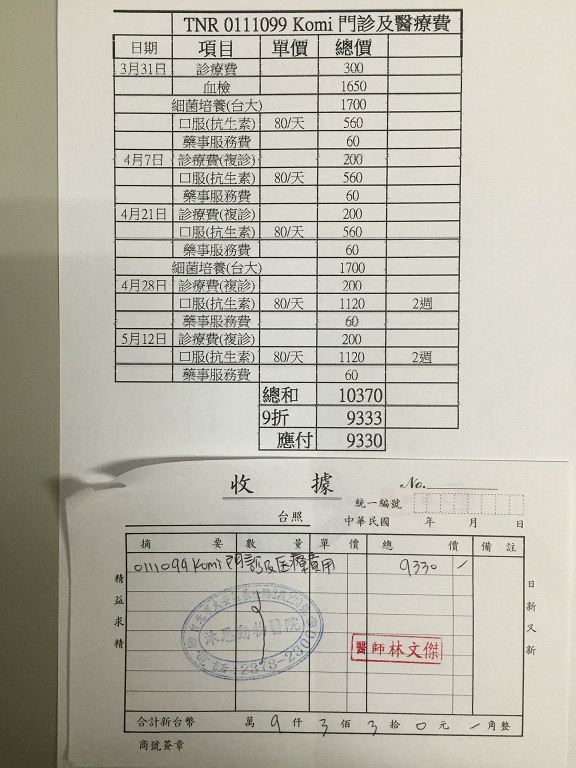 TNR 0111099 Komi 門診及醫療費
日期 項目 單價 總價
3月31日 診療費 300
血檢 1650
細菌培養(台大) 1700
口服(抗生素) 80/天 560
藥事服務費 60
4月7日 診療費(複診) 200
口服(抗生素) 80/天 560
藥事服務費 60
4月21日 診療費(複診) 200
口服(抗生素) 80/天 560
藥事服務費 60
細菌培養(台大) 1700
4月28日 診療費(複診) 200
口服(抗生素) 80/天 1120 2週
藥事服務費 60
5月12日 診療費(複診) 200
口服(抗生素) 80/天 1120 2週
藥事服務費 60
總和 10370
9折 9333
應付 9330
收據 No.
統一編號
台照 中華民國 年 月 日
摘要 數量 單價 總價 備註
0111099 Komi 門診及医療費用 9330
精益求精
日新又新
沐恩動物醫院
醫師林文傑
合計新台幣 萬 9 仟 3 佰 3 拾 0 元 角整
商號簽章